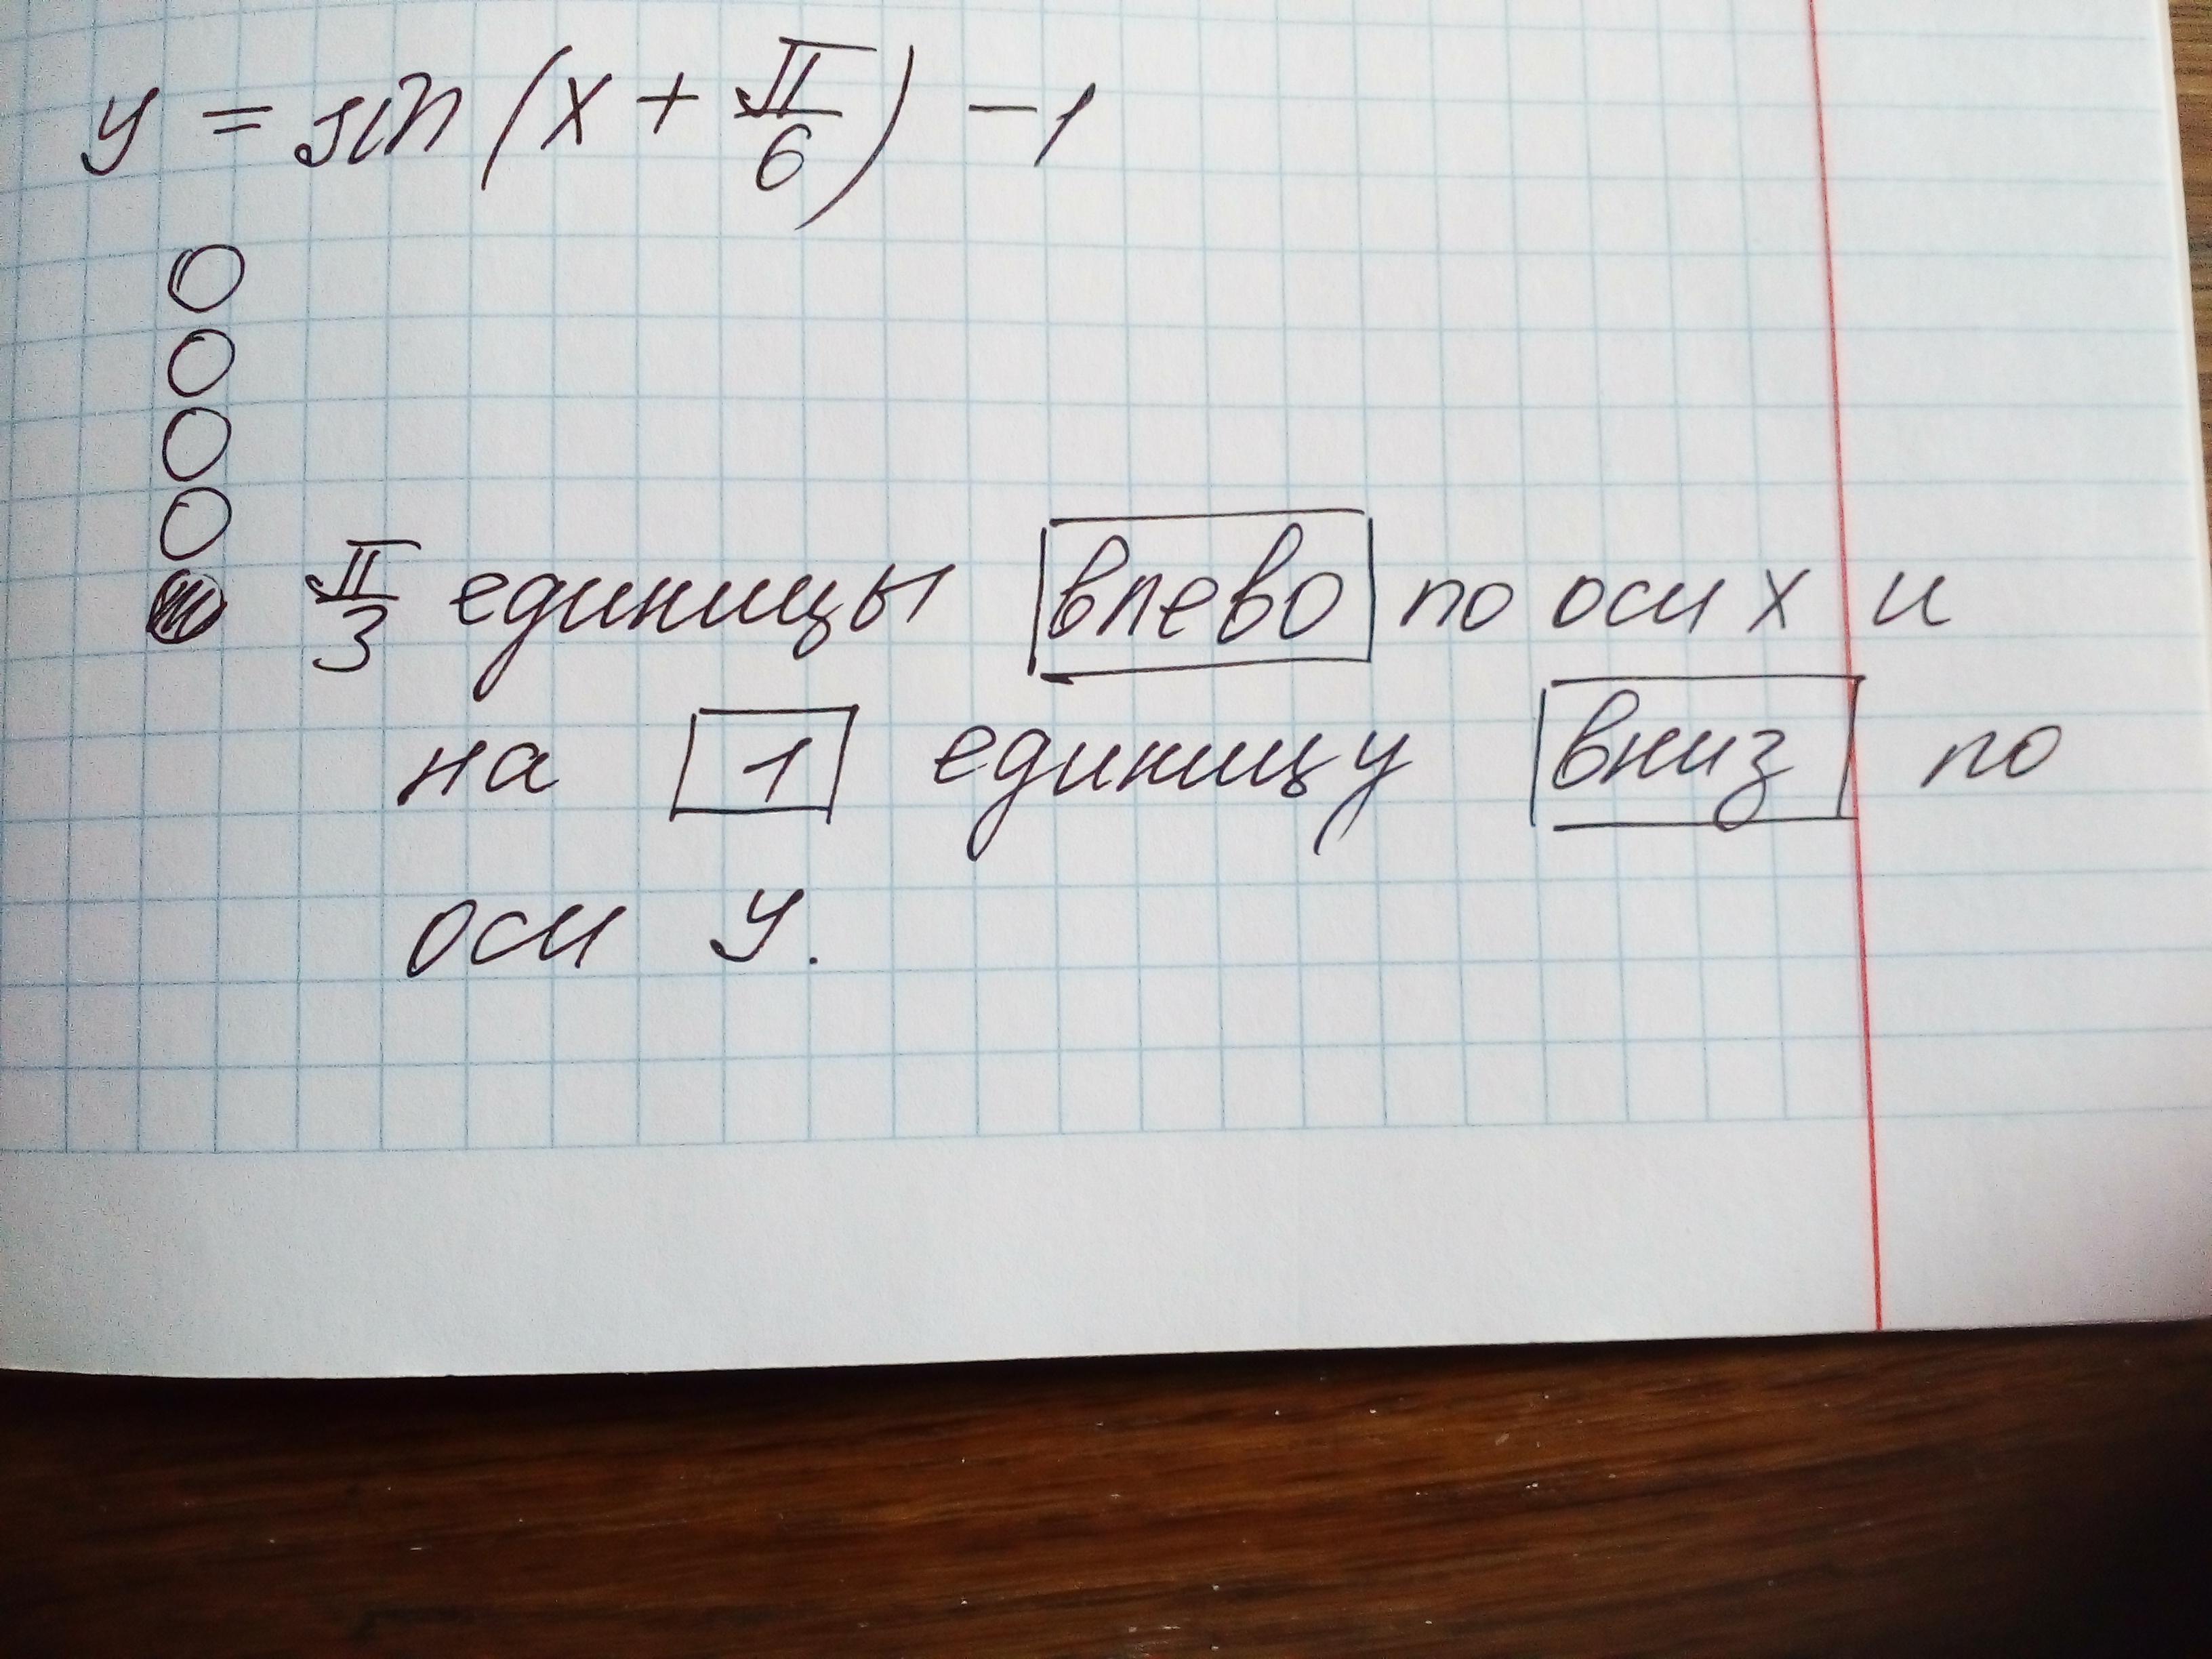 y = sin (x + π/6) - 1
π/3 единицы влево по оси x и
на 1 единицу вниз по
оси y.